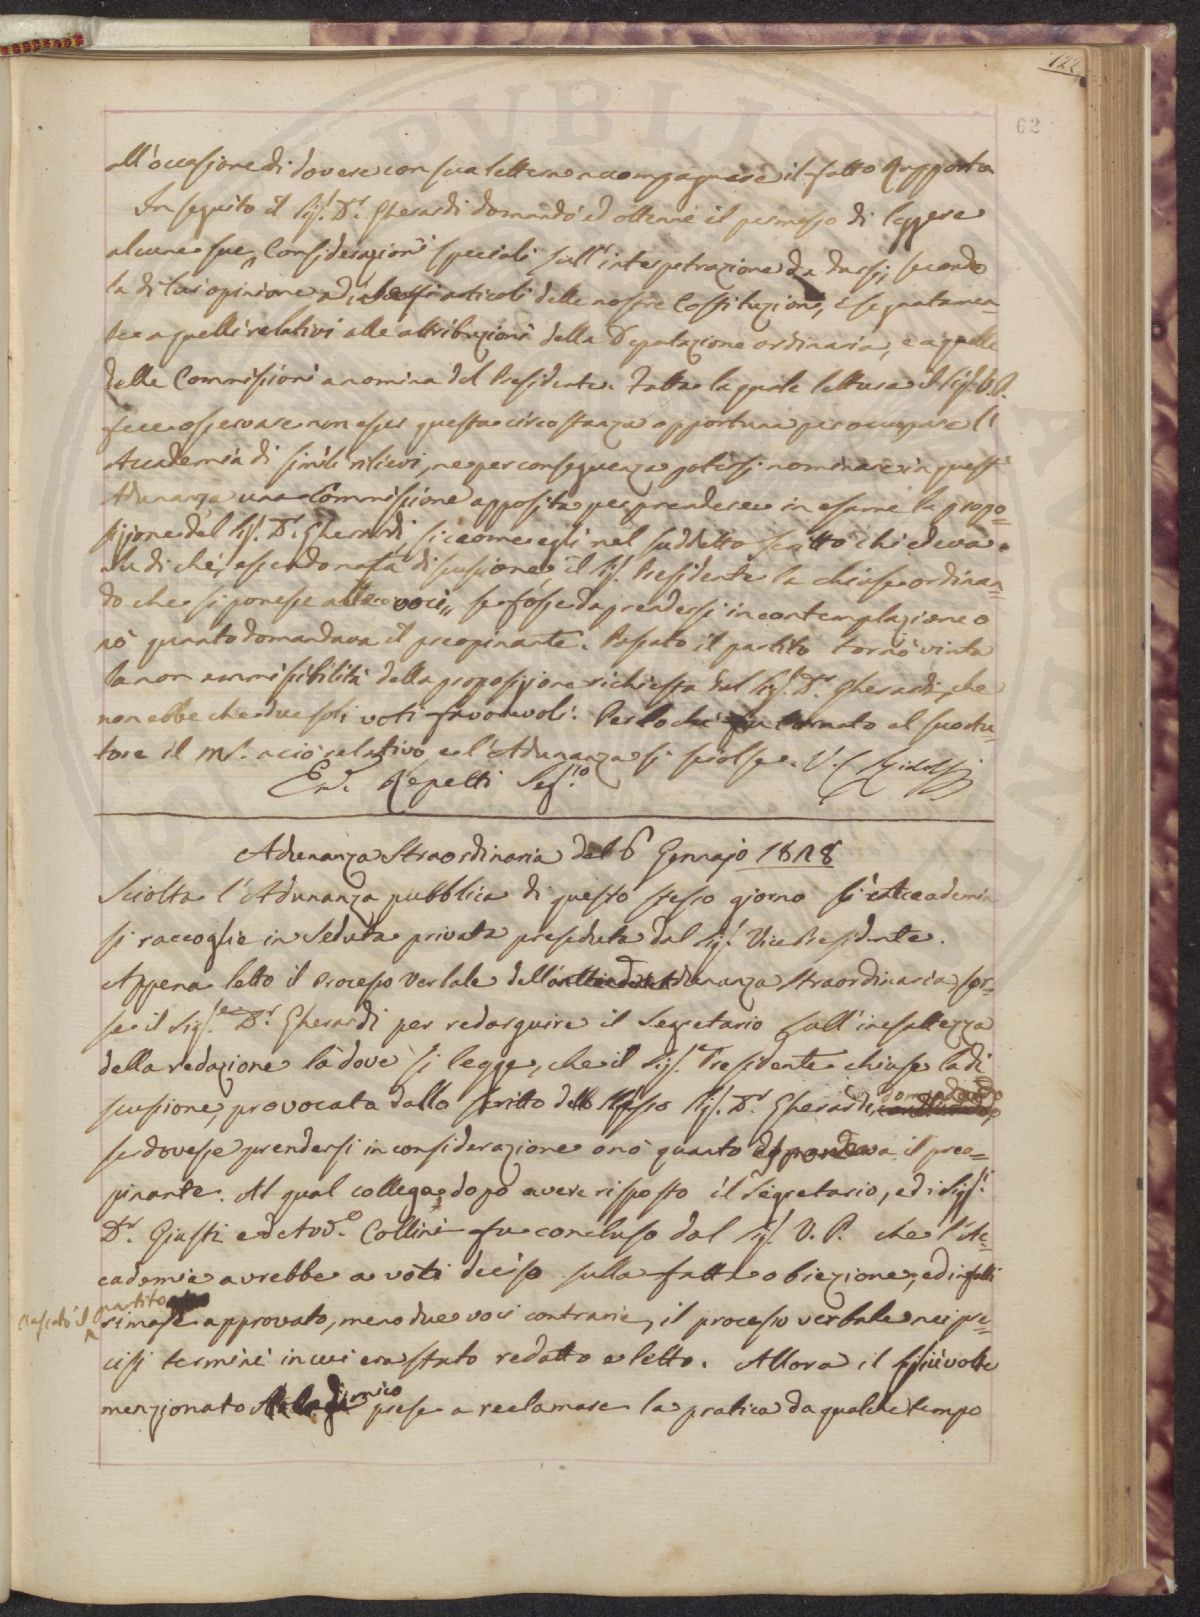 122
62
all'occasione di dovere con sua lettera accompagnare il fatto Rapporto
In seguito il Sig.r D.r Gherardi domandò ed ottenne il permesso di leggere
alcune sue „ Considerazioni speciali sull'interpetrazione da darsi, secondo
la di lui opinione a diversi articoli delle nostre Costituzioni, e segnatamen=
te a quelli relativi alle attribuzioni della Deputazione ordinaria, e a quelle
delle Commissioni a nomina del Presidente. Fatta la quale lettura il Sig.r V.P.
fece osservare non esser questa circostanza opportuna per occupare l'
Accademia di simili rilievi, ne per conseguenza potersi nominare in questa
Adunanza una Commissione apposita per prendere in esame la propo=
sizione del Sig.r D.r Gherardi, siccome egli nel suddetto scritto chiedeva.
Su di che, essendo nata discussione, il Sig.r Presidente la chiuse ordinan=
do che si ponesse alle voci „ se fosse da prendersi in contemplazione o
nò quanto domandava il preopinante. Passato il partito tornò vinta
la non ammissibilità della proposizione richiesta dal Sig.r D.r Gherardi, che
non ebbe che due soli voti favorevoli. Perlochè fu tornato al suo Au=
tore il Ms. a ciò relativo, e l'Adunanza si sciolse. V. C. Ridolfi
Em. Repetti Seg.rio
Adunanza Straordinaria del 6 Gennajo 1828
Sciolta l'Adunanza pubblica di questo stesso giorno l'Accademia
si raccoglie in Seduta privata preseduta dal Sig.r Vice Presidente.
Appena letto il Processo Verbale dell' Adunanza Straordinaria sor=
se il Sig.re D.r Gherardi per redarguire il Segretario sull'inesattezza
della redazione là dove si legge, che il Sig.r Presidente chiuse la di
scussione, provocata dallo scritto dello stesso Sig.r D.r Gherardi, domandando
se dovesse prendersi in considerazione o nò quanto esponeva il preo=
pinante. Al qual collega, dopo avere risposto il Segretario, ed i Sigg.ri
D.r Giusti ed Avv.o Collini fu concluso dal Sig.r V. P. che l'Ac=
cademia avrebbe a voti deciso sulla fatta obiezione; ed infatti
partito
rimase approvato, meno due voci contrarie, il processo verbale nei pre=
cisi termini in cui era stato redatto e letto. Allora il più volte
menzionato Accademico prese a reclamare la pratica da qualche tempo